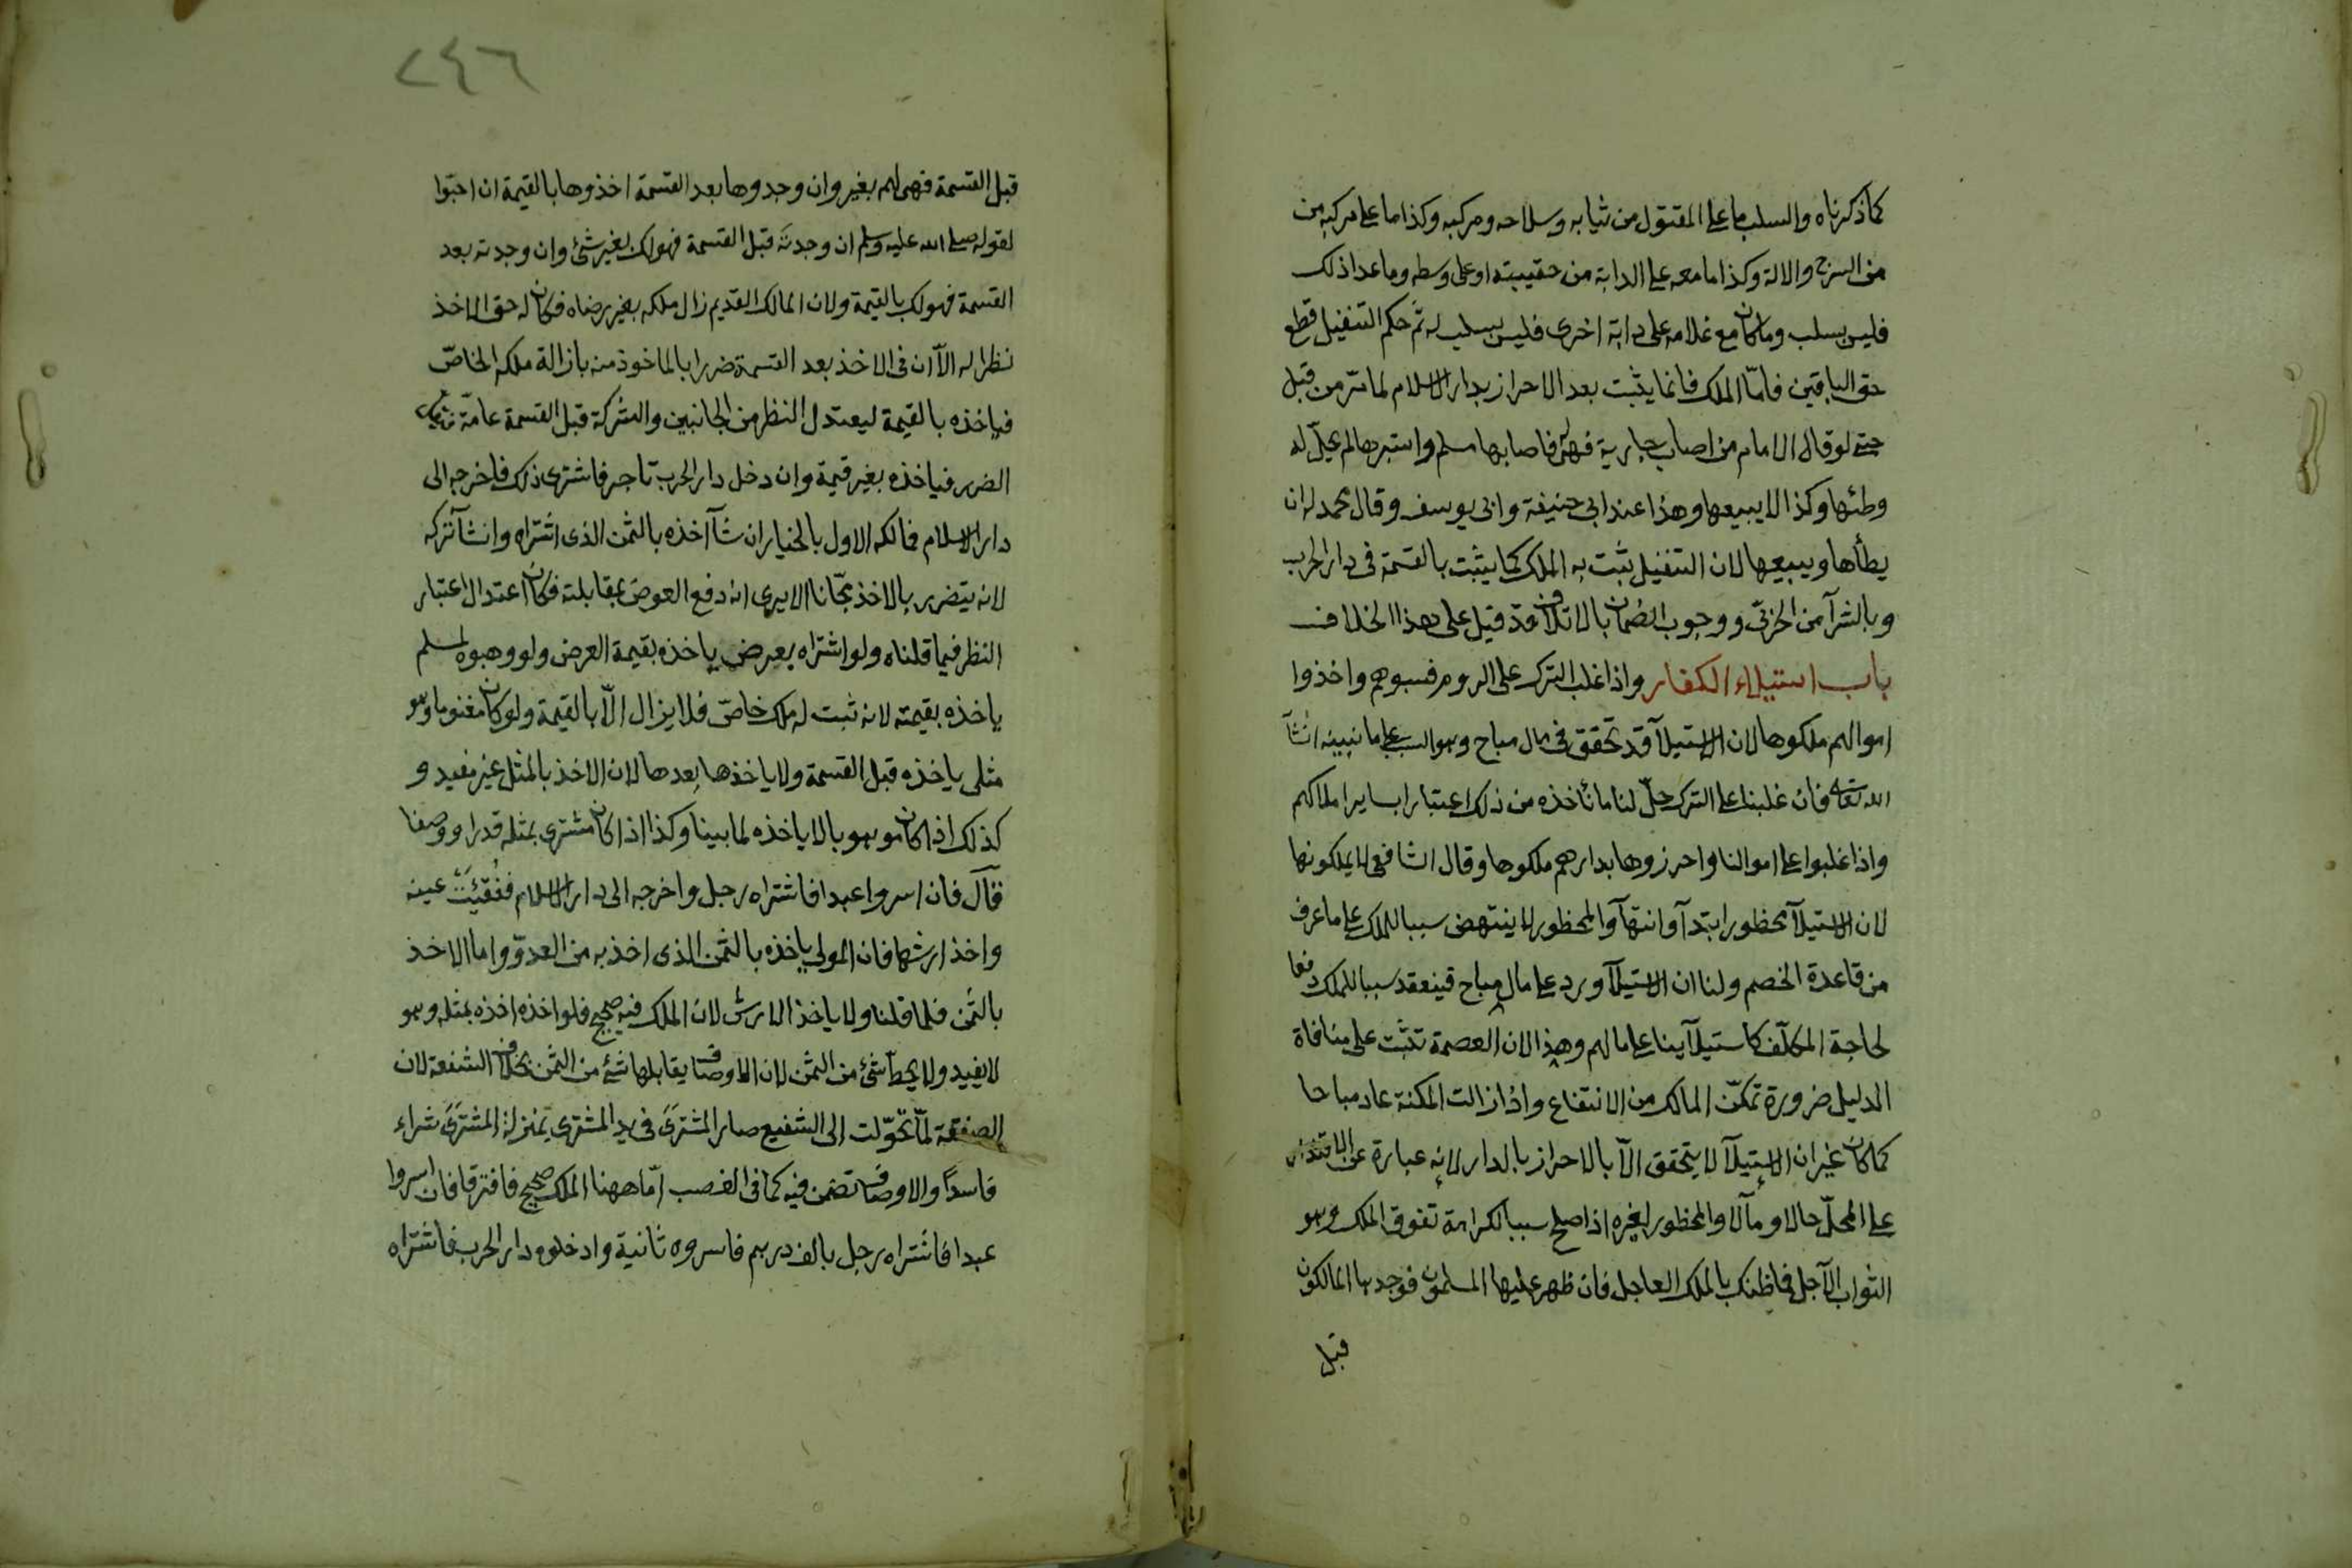 كما ذكرناه والسلب ما على المقتول من ثيابه وسلاحه ومركبه وكذا ما على مركبه من
من السرج والالة وكذا ما معه على الدابة من حقيبته او على وسطه وما عدا ذلك
فليس بسلب وما كان مع غلامه على دابة اخرى فليس بسلب له ثم حكم التنفيل قطع
حق الباقين فاما الملك فانما يثبت بعد الاحراز بدار الاسلام لما مر من قبل
حتى لو قال الامام من اصاب جارية فهى له فاصابها مسلم واستبرها لم يحل له
وطئها وكذا لا يبيعها وهذا عند ابى حنيفة وابى يوسف وقال محمد له ان
يطأها ويبيعها لان التنفيل يثبت به الملك كما يثبت بالقسمة فى دار الحرب
وبالشرآ من الحربى ووجوب الضمان بالاتلاف قد قيل على هذا الخلاف
باب استيلاء الكفار واذا غلب الترك على الروم فسبوهم واخذوا
اموالهم ملكوها لان الاستيلآ قد تحقق فى مال مباح وهو السبب على ما نبينه انشآ
الله تعالى فان غلبنا على الترك حل لنا ما نأخذه من ذلك اعتبارا بساير املاكهم
واذا غلبوا على اموالنا واحرزوها بدارهم ملكوها وقال الشافعى لا يملكونها
لان الاستيلآ محظور ابتدآ وانتهآ والمحظور لا ينتهض سببا للملك على ما عرف
من قاعدة الخصم ولنا ان الاستيلآ ورد على مال مباح فينعقد سببا للملك دفعا
لحاجة المكلف كاستيلآينا على مالهم وهذا لان العصمة تثبت على منافاة
الدليل ضرورة تمكن المالك من الانتفاع واذا زالت المكنة عاد مباحا
كما كان غير ان الاستيلآ لا يتحقق الا بالاحراز بالدار لانه عبارة عن الاقتدار
على المحل حالا ومآلا والمحظور لغيره اذا صلح سببا لكرامة تفوق الملك وهو
الثواب الآجل فما ظنك بالملك العاجل فان ظهر عليها المسلمون فوجدها المالكون
قبل
٢٤٦
قبل القسمة فهى لهم بغير وان وجدوها بعد القسمة اخذوها بالقيمة ان احبوا
لقوله صلى الله عليه وسلم ان وجدته قبل القسمة فهو لك بغير شئ وان وجدته بعد
القسمة فهو لك بالقيمة ولان المالك القديم زال ملكه بغير رضاه فكان له حق الاخذ
نظرا له الآ ان فى الاخذ بعد القسمة ضررا بالماخوذ منه بازالة ملكه الخاص
فياخذه بالقيمة ليعتدل النظر من الجانبين والشركة قبل القسمة عامة
الضرر فياخذه بغير قيمة وان دخل دار الحرب تاجر فاشترى ذلك فاخرجه الى
دار الاسلام فمالكه الاول بالخيار ان شآ اخذه بالثمن الذى اشتراه وان شآ تركه
لانه يتضرر بالاخذ مجانا الا يرى انه دفع العوض بمقابلته فكان اعتدال اعتبار
النظر فيما قلناه ولو اشتراه بعرض ياخذه بقيمة العرض ولو وهبوه لمسلم
ياخذه بقيمته لانه ثبت له ملك خاص فلا يزال الا بالقيمة ولو كان مغنوما وهو
مثلى ياخذه قبل القسمة ولا ياخذها بعدها لان الاخذ بالمثل غير مفيد و
كذلك اذا كان موهوبا لا ياخذه لما بينا وكذا اذا كان مشترى بمثله قدرا ووصفا
قال فان اسروا عبدا فاشتراه رجل واخرجه الى دار الاسلام ففقئت عينه
واخذ ارشها فان المولى ياخذه بالثمن الذى اخذ به من العدو واما الاخذ
بالثمن فلما قلنا ولا ياخذ الارش لان الملك فيه صحيح فلو اخذه اخذه بمثله وهو
لا يفيد ولا يحط شئ من الثمن لان الاوصاف لا يقابلها شئ من الثمن بخلاف الشفعة لان
الصفقة لما تحولت الى الشفيع صار المشترى فى يد المشترى بمنزلة المشترى شراء
فاسدا والاوصاف تضمن فيه كما فى الغصب اما ههنا الملك صحيح فافترقا فان اسروا
عبدا فاشتراه رجل بالف درهم فاسروه ثانية وادخلوه دار الحرب فاشتراه